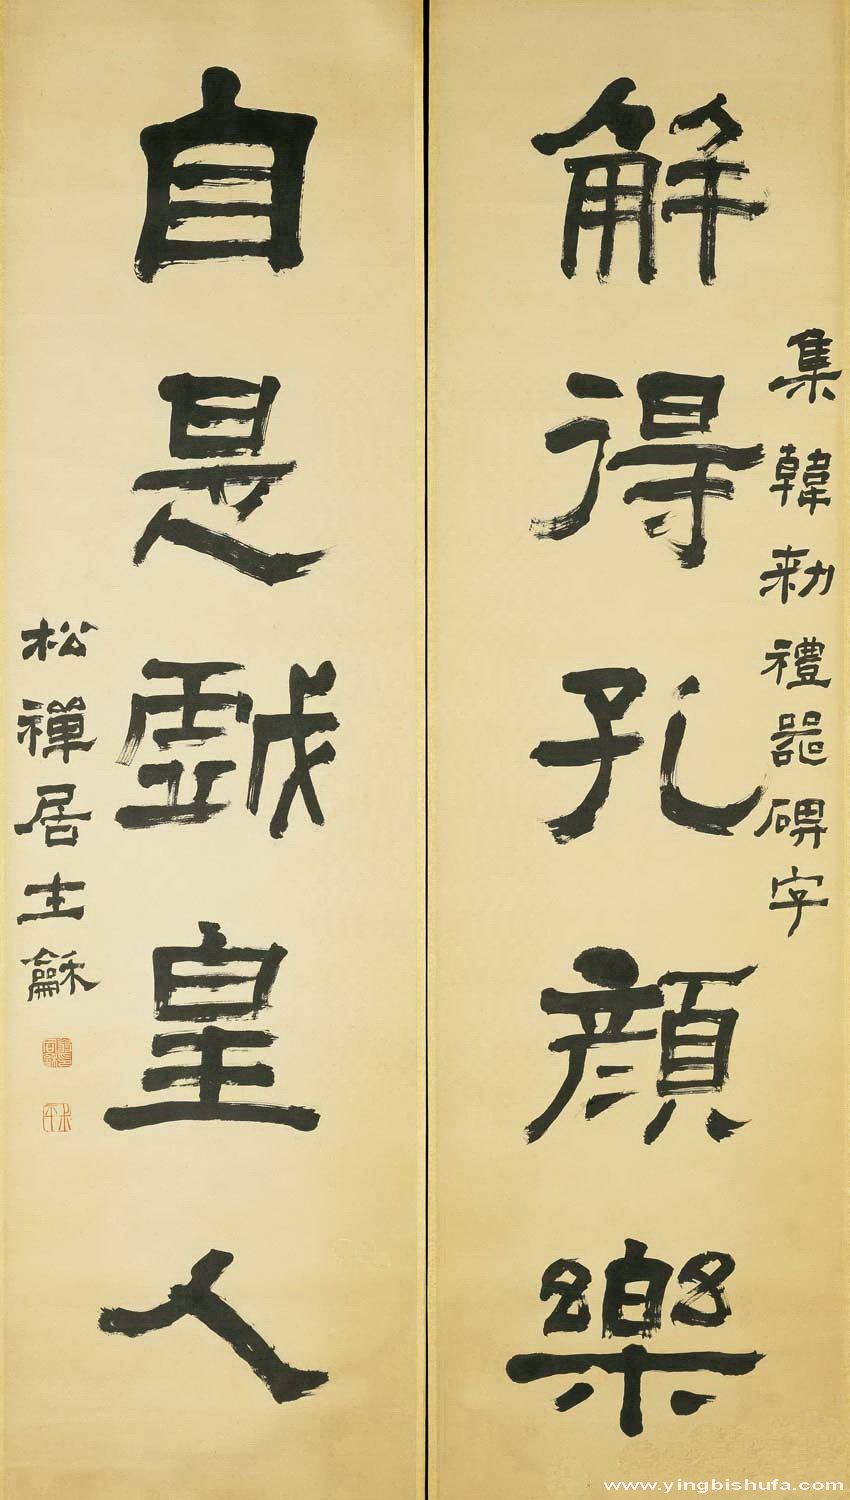 集韓勅禮器碑字
解得孔顏樂
自是戲皇人
松禪居士龢
www.yingbishufa.com